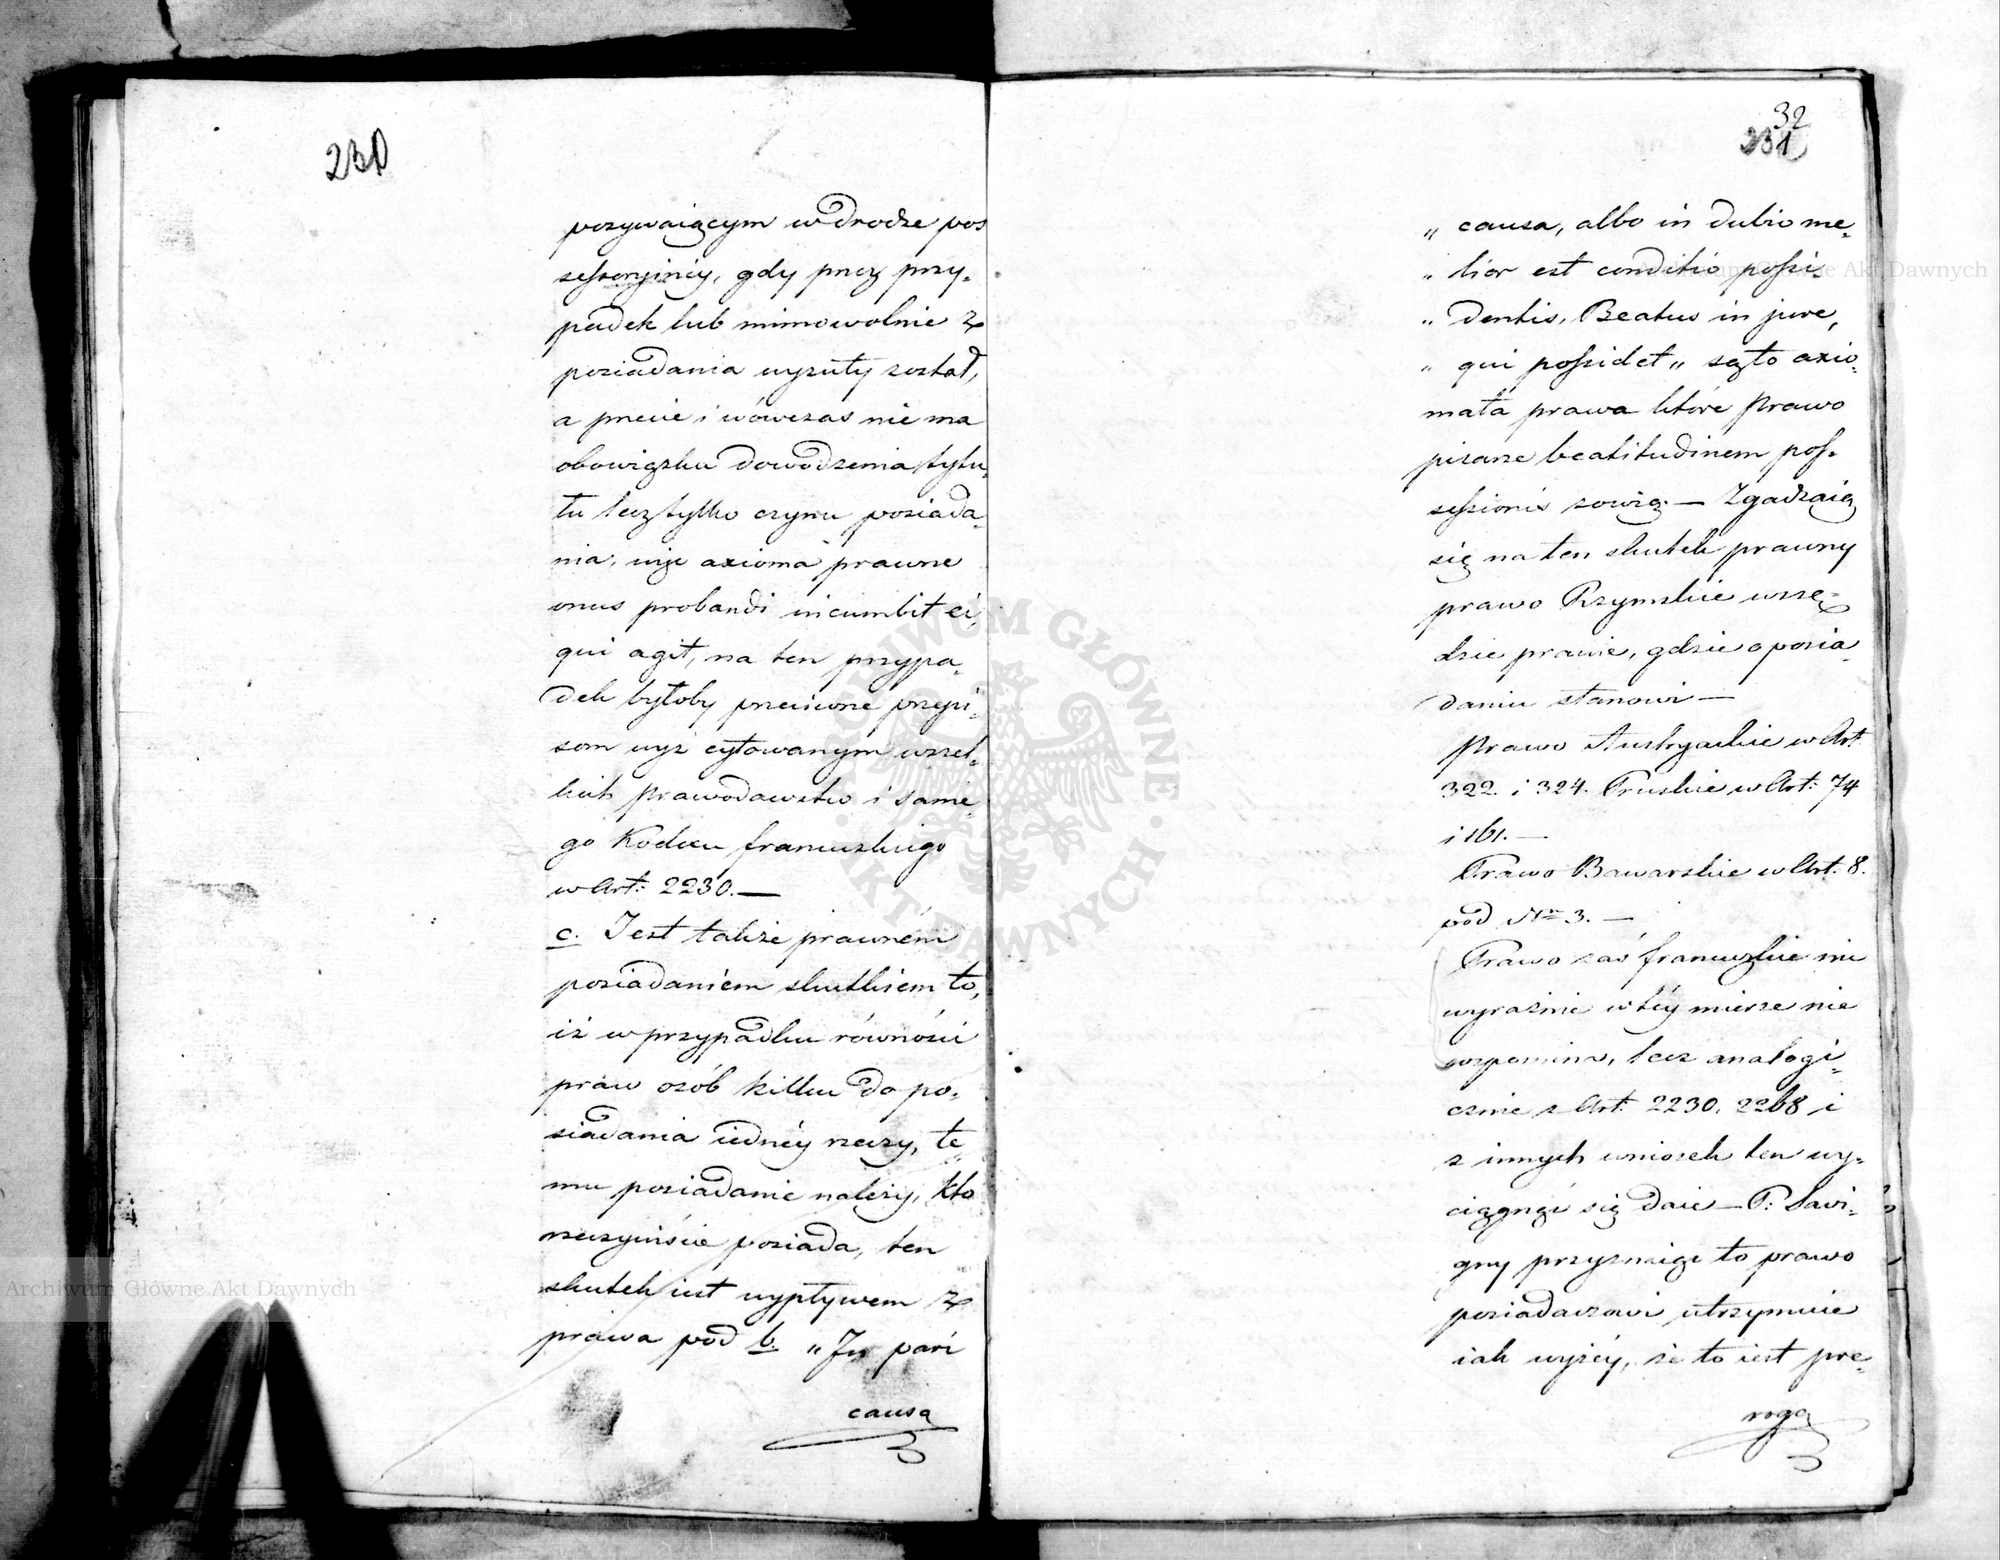 230
pozywaiącym w drodze pos
sessoryinéy, gdy przez przy-
padek lub mimowolnie z
posiadania wyzuty został,
a przecie i wówczas nie ma
obowiązku dowodzenia tytu-
łu lecz tylko czynu posiada-
nia, więc axioma prawne
onus probandi incumbit ei,
qui agit, na ten przypa-
dek byłoby przeciwne przepi-
som wyż cytowanym wszel-
kich prawodawstw i same-
go Kodexu francuzkiego
w Art: 2230.—
c. Jest także prawném
posiadaniem skutkiem to,
iż w przypadku równości
praw osób kilku do po-
siadania iednéy rzeczy, te
mu posiadanie należy, kto
rzeczywiście posiada, ten
skutek iest wypływem z
prawa pod b. „In pari
causa
32
231
„ causa, albo in dubio me-
„ lior est conditio possi-
„ dentis, Beatus in jure,
„ qui possidet„ są to axio-
mata prawa które prawo
pisane beatitudinem pos-
sessionis zowią — Zgadzaią
się na ten skutek prawny
prawo Rzymskie wszę-
dzie prawie, gdzie o posia-
daniu stanowi —
Prawo Austryackie w Art
322. i 324. Pruskie w Art: 74
i 161.—
Prawo Bawarskie w Art. 8.
pod Nro 3. —
Prawo zaś francuzkie
wyraźnie w téy mierze nie
wspomina, lecz analogi-
cznie z Art: 2230, 2268 i
z innych wniosek ten wy-
ciągnąć się daie — P: Savi-
gny przyznaiąc to prawo
posiadaczowi utrzymuie
iak wyżéy, że to iest pre-
roga
Archiwum Główne Akt Dawnych
Archiwum Główne Akt Dawnych
ARCHIWUM GŁÓWNE AKT DAWNYCH